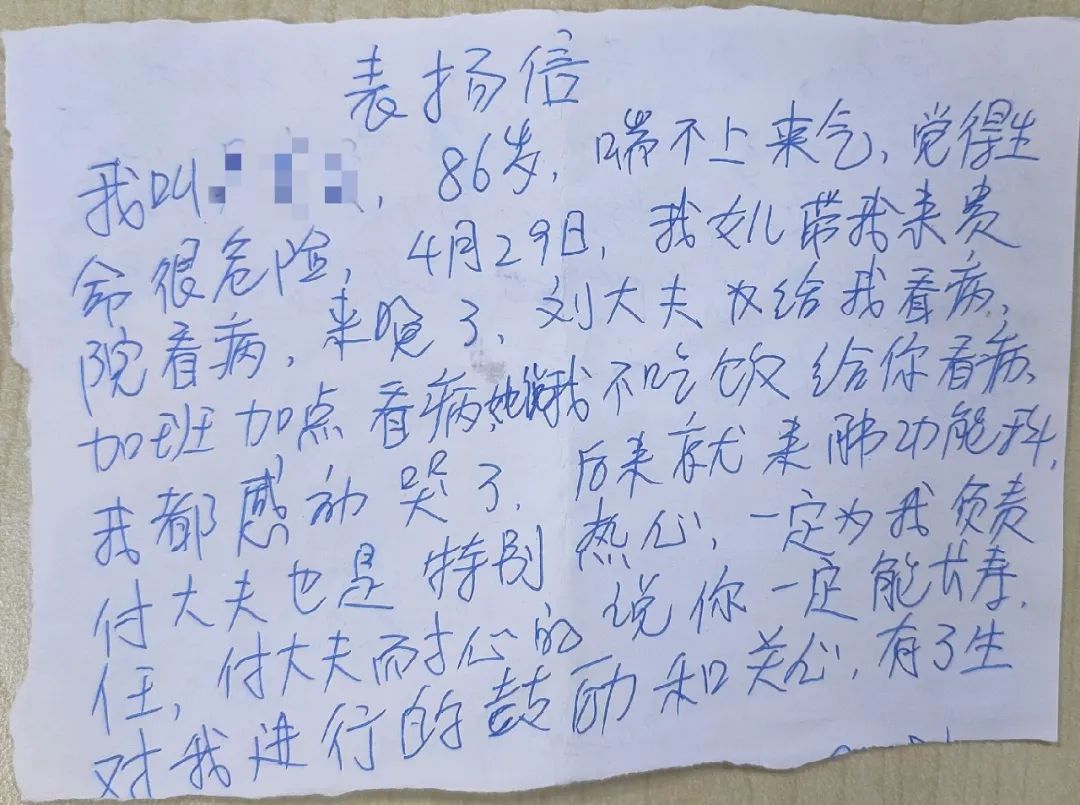 表扬信
我叫, 86岁, 喘不上来气, 觉得生
命很危险, 4月29日, 我女儿带我来贵
院看病, 来晚了, 刘大夫为给我看病,
加班加点看病, 她说我不吃饭给你看病,
我都感动哭了, 后来就来肺功能科,
付大夫也是特别热心, 一定为我负责
任, 付大夫耐心的说你一定能长寿,
对我进行的鼓励和关心, 有了生